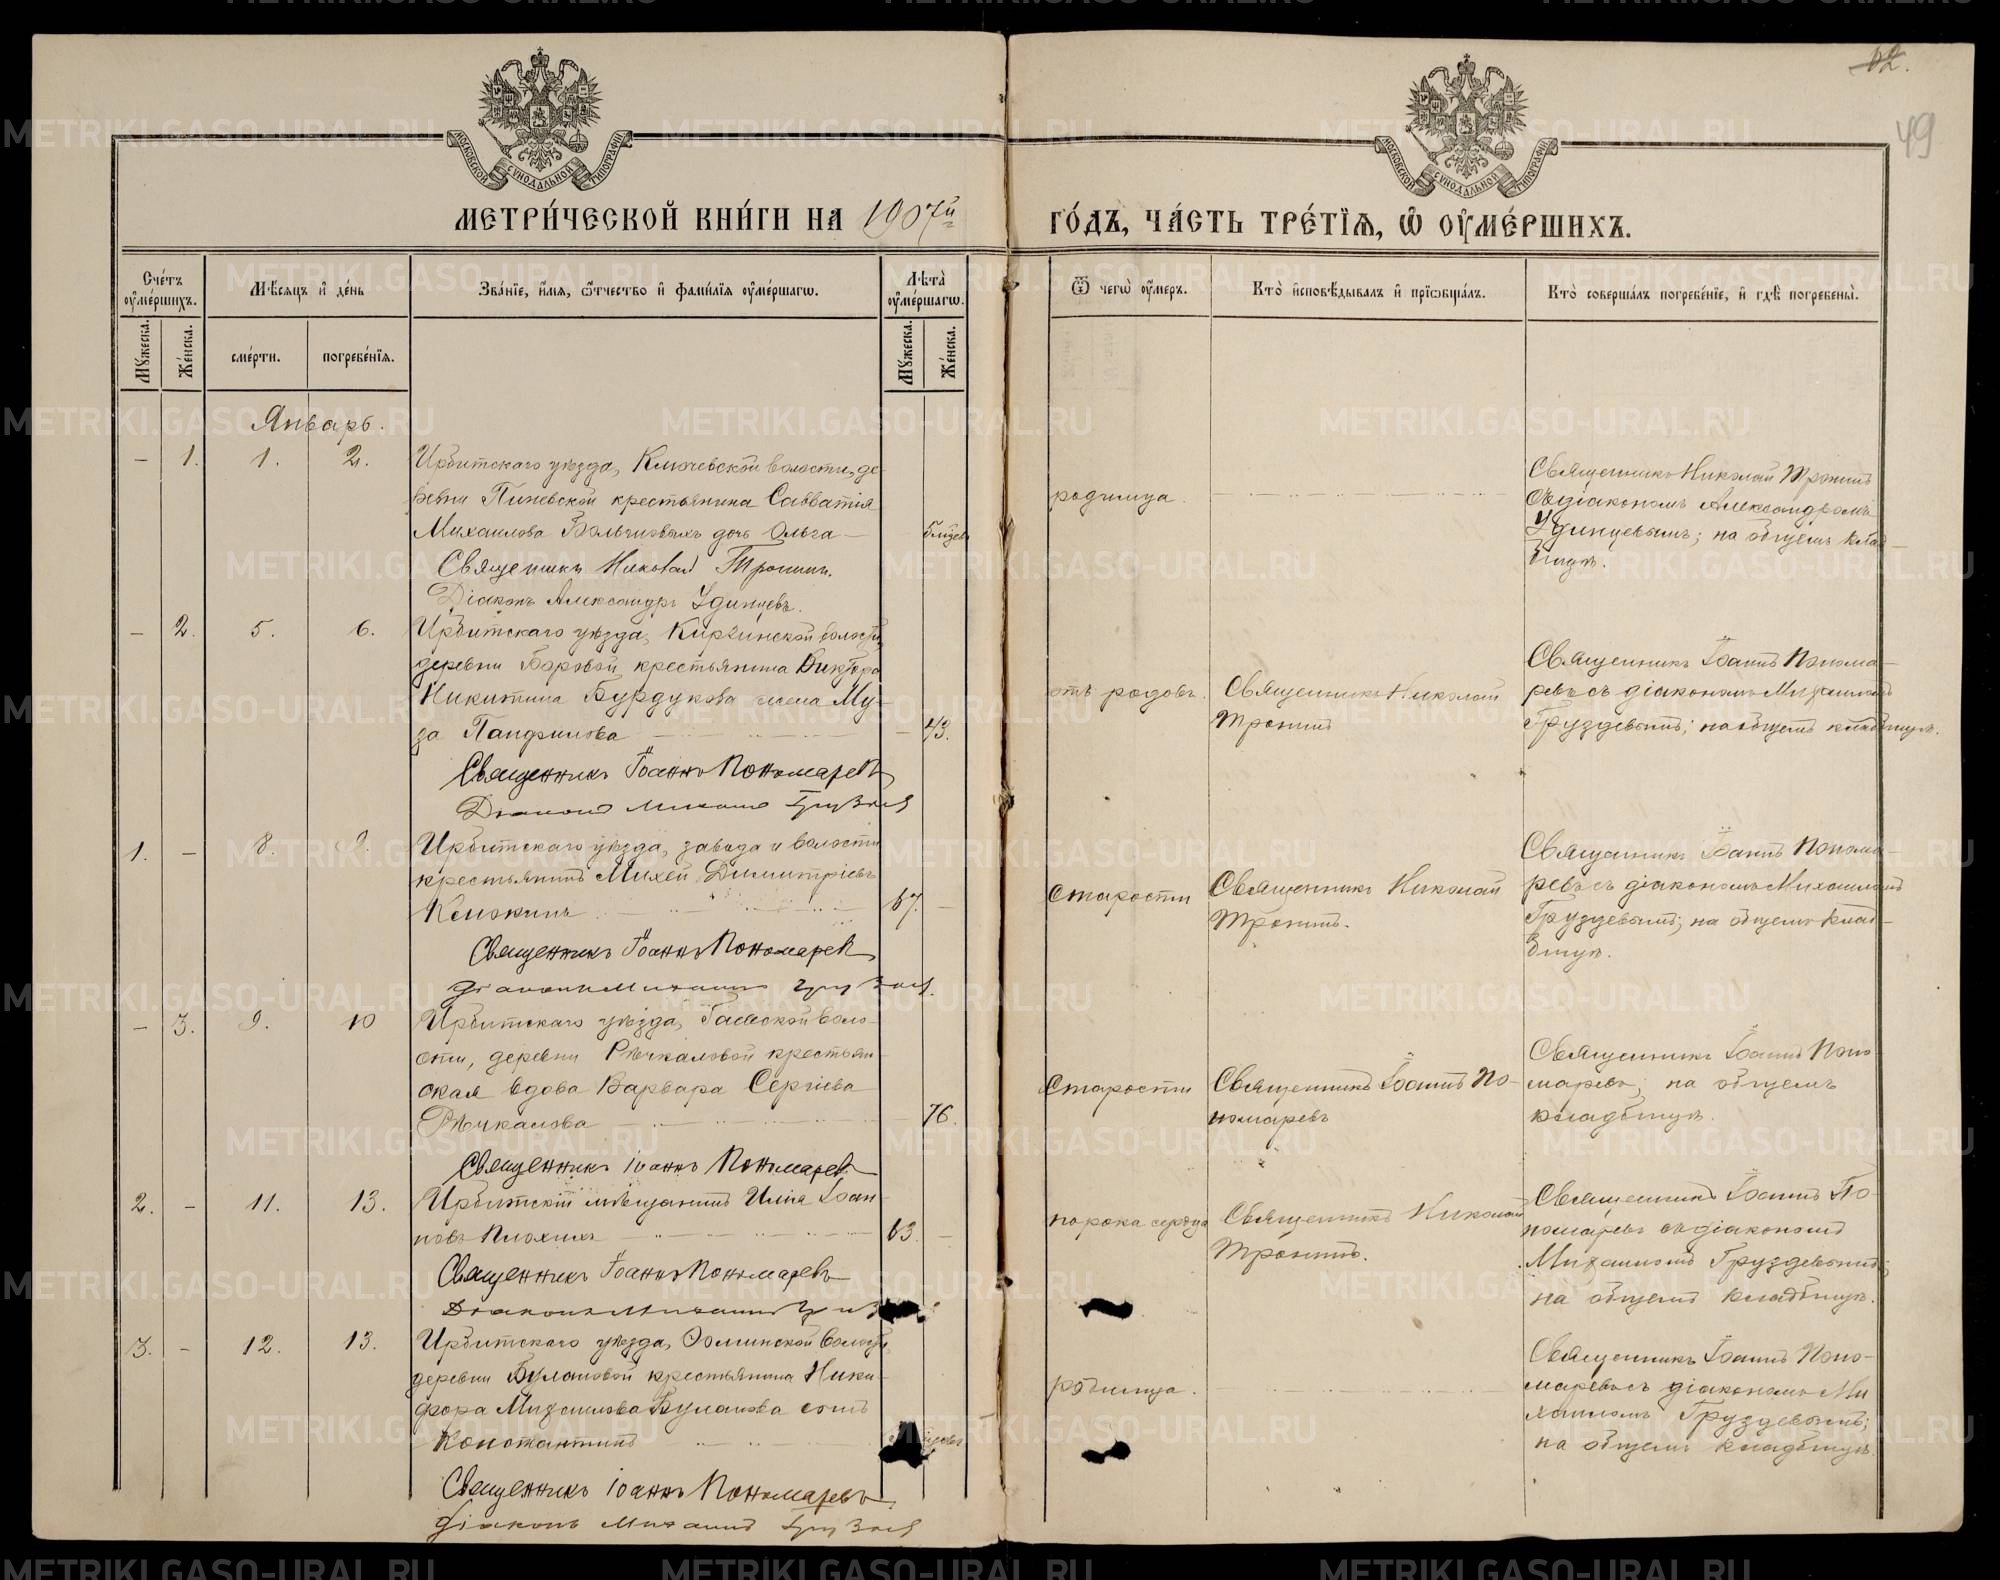 62.
49
МОСКОВСКОЙ СѴНОДАЛЬНОЙ ТИПОГРАФІИ
МОСКОВСКОЙ СѴНОДАЛЬНОЙ ТИПОГРАФІИ
МЕТРИ́ЧЕСКОЙ КНИ́ГИ НА 1907й
ГО́ДЪ, ЧА́СТЬ ТРЕ́ТІѦ, Ѡ҆ ОУ҆МЕ́РШИХЪ.
Сче́тъ оу҆ме́ршихъ.
Мѣ́сяцъ и҆ де́нь
Зва́нїе, и҆́мя, ѻ҆́тчество и҆ фами́лїя оу҆ме́ршагѡ.
Лѣ́та оу҆ме́ршагѡ.
Ѿ чегѡ̀ оу҆́меръ.
Кто̀ и҆сповѣ́дывалъ и҆ прїѡбща́лъ.
Кто̀ соверша́лъ погребе́нїе, и҆ гдѣ̀ погребены̀.
Мꙋ́жеска.
Же́нска.
сме́рти.
погребе́нїя.
Мꙋ́жеска.
Же́нска.
Январь.
— 1. 1. 2.
Ирбитскаго уѣзда, Ключевской волости, де-
ревни Пиневской крестьянина Савватія
Михаилова дочь Ольга —
Священникъ Николай Тронинъ.
Діаконъ Александръ Удинцевъ.
родимца.
Священникъ Николай Тронинъ
съ діакономъ Александромъ
Удинцевымъ; на общемъ клад-
бищѣ.
— 2. 5. 6.
Ирбитскаго уѣзда, Киргинской волости,
деревни Боровой крестьянина Виктора
Никитина Бурдукова жена Му-
за Панфилова — 43.
Священникъ Іоаннъ Пономаревъ
Діаконъ Михаилъ Груздевъ
отъ родовъ.
Священникъ Николай
Тронинъ
Священникъ Іоаннъ Понома-
ревъ съ діакономъ Михаиломъ
Груздевымъ; на общемъ кладбищѣ.
1. — 8. 9.
Ирбитскаго уѣзда, завода и волости
крестьянинъ Михей Димитріевъ
67. —
Священникъ Іоаннъ Пономаревъ
Діаконъ Михаилъ Груздевъ.
Старости
Священникъ Николай
Тронинъ.
Священникъ Іоаннъ Понома-
ревъ съ діакономъ Михаиломъ
Груздевымъ; на общемъ клад-
бищѣ.
— 3. 9. 10
Ирбитскаго уѣзда, Гаевской воло-
сти, деревни Рѣчкаловой крестьян-
ская вдова Варвара Сергіева
Рѣчкалова — 76.
Священникъ Іоаннъ Пономаревъ
Старости
Священникъ Іоаннъ По-
номаревъ
Священникъ Іоаннъ Поно-
маревъ; на общемъ
кладбищѣ.
2. — 11. 13.
Ирбитскій мѣщанинъ Илія Іоан-
новъ Плохихъ 63. —
Священникъ Іоаннъ Пономаревъ
Діаконъ Михаилъ
порока сердца
Священникъ Николай
Тронинъ.
Священникъ Іоаннъ По-
номаревъ съ діакономъ
Михаиломъ Груздевымъ;
на общемъ кладбищѣ.
3. — 12. 13.
Ирбитскаго уѣзда, волости
деревни Булановой крестьянина Ники-
фора Михаилова Буланова сынъ
Константинъ
Священникъ Іоаннъ Пономаревъ
Діаконъ Михаилъ Груздевъ
Священникъ Іоаннъ Поно-
маревъ съ діакономъ Ми-
хаиломъ Груздевымъ;
на общемъ кладбищѣ.
METRIKI.GASO-URAL.RU